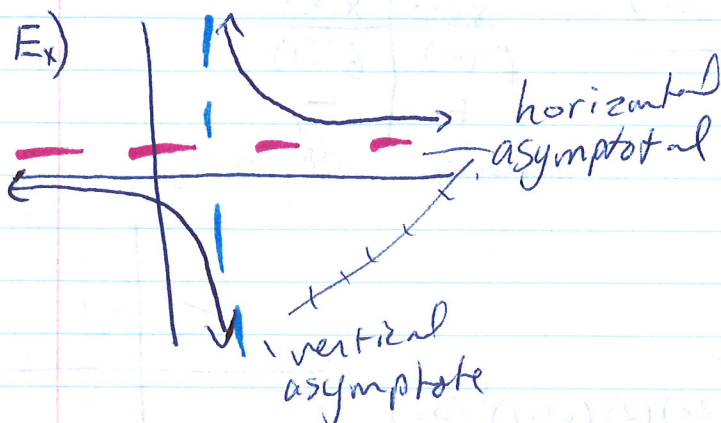 Ex)
horizontal
asymptotal
vertical
asymptote